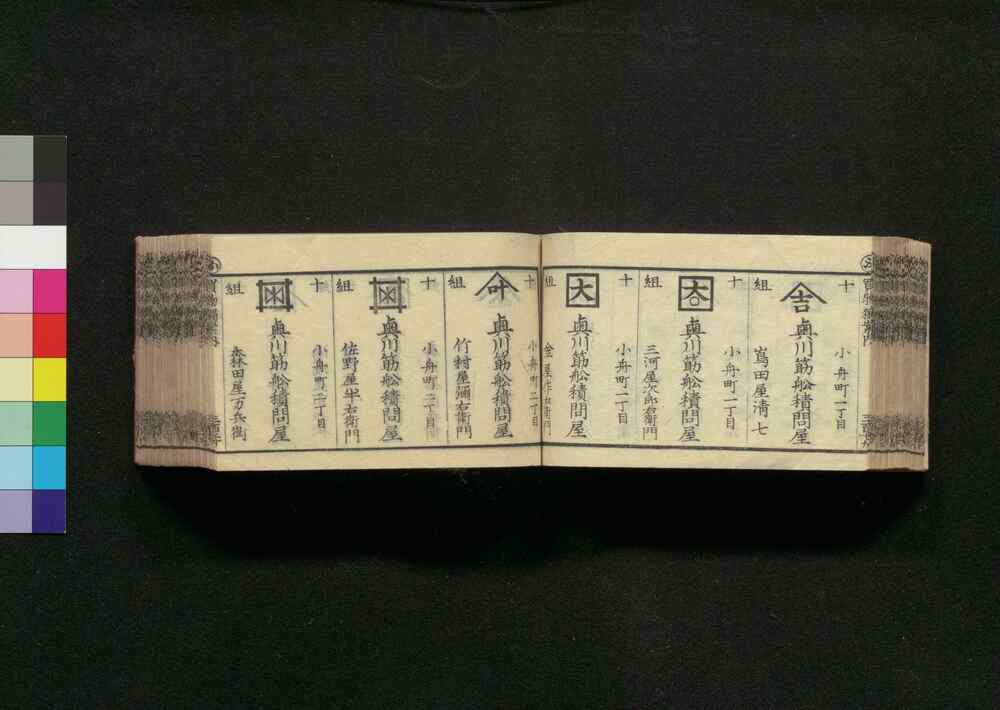 十
組
吉
小舟町一丁目
奥川筋舩積問屋
嶌田屋清七
十
組
小舟町一丁目
奥川筋舩積問屋
三河屋次郎右衛門
十
組
大
小舟町二丁目
奥川筋舩積問屋
小舟町二丁目
十
組
叶
奥川筋舩積問屋
竹村屋彌右衛門
十
組
小舟町三丁目
奥川筋舩積問屋
佐野屋半右衛門
十
組
小舟町三丁目
奥川筋舩積問屋
森田屋万兵衛